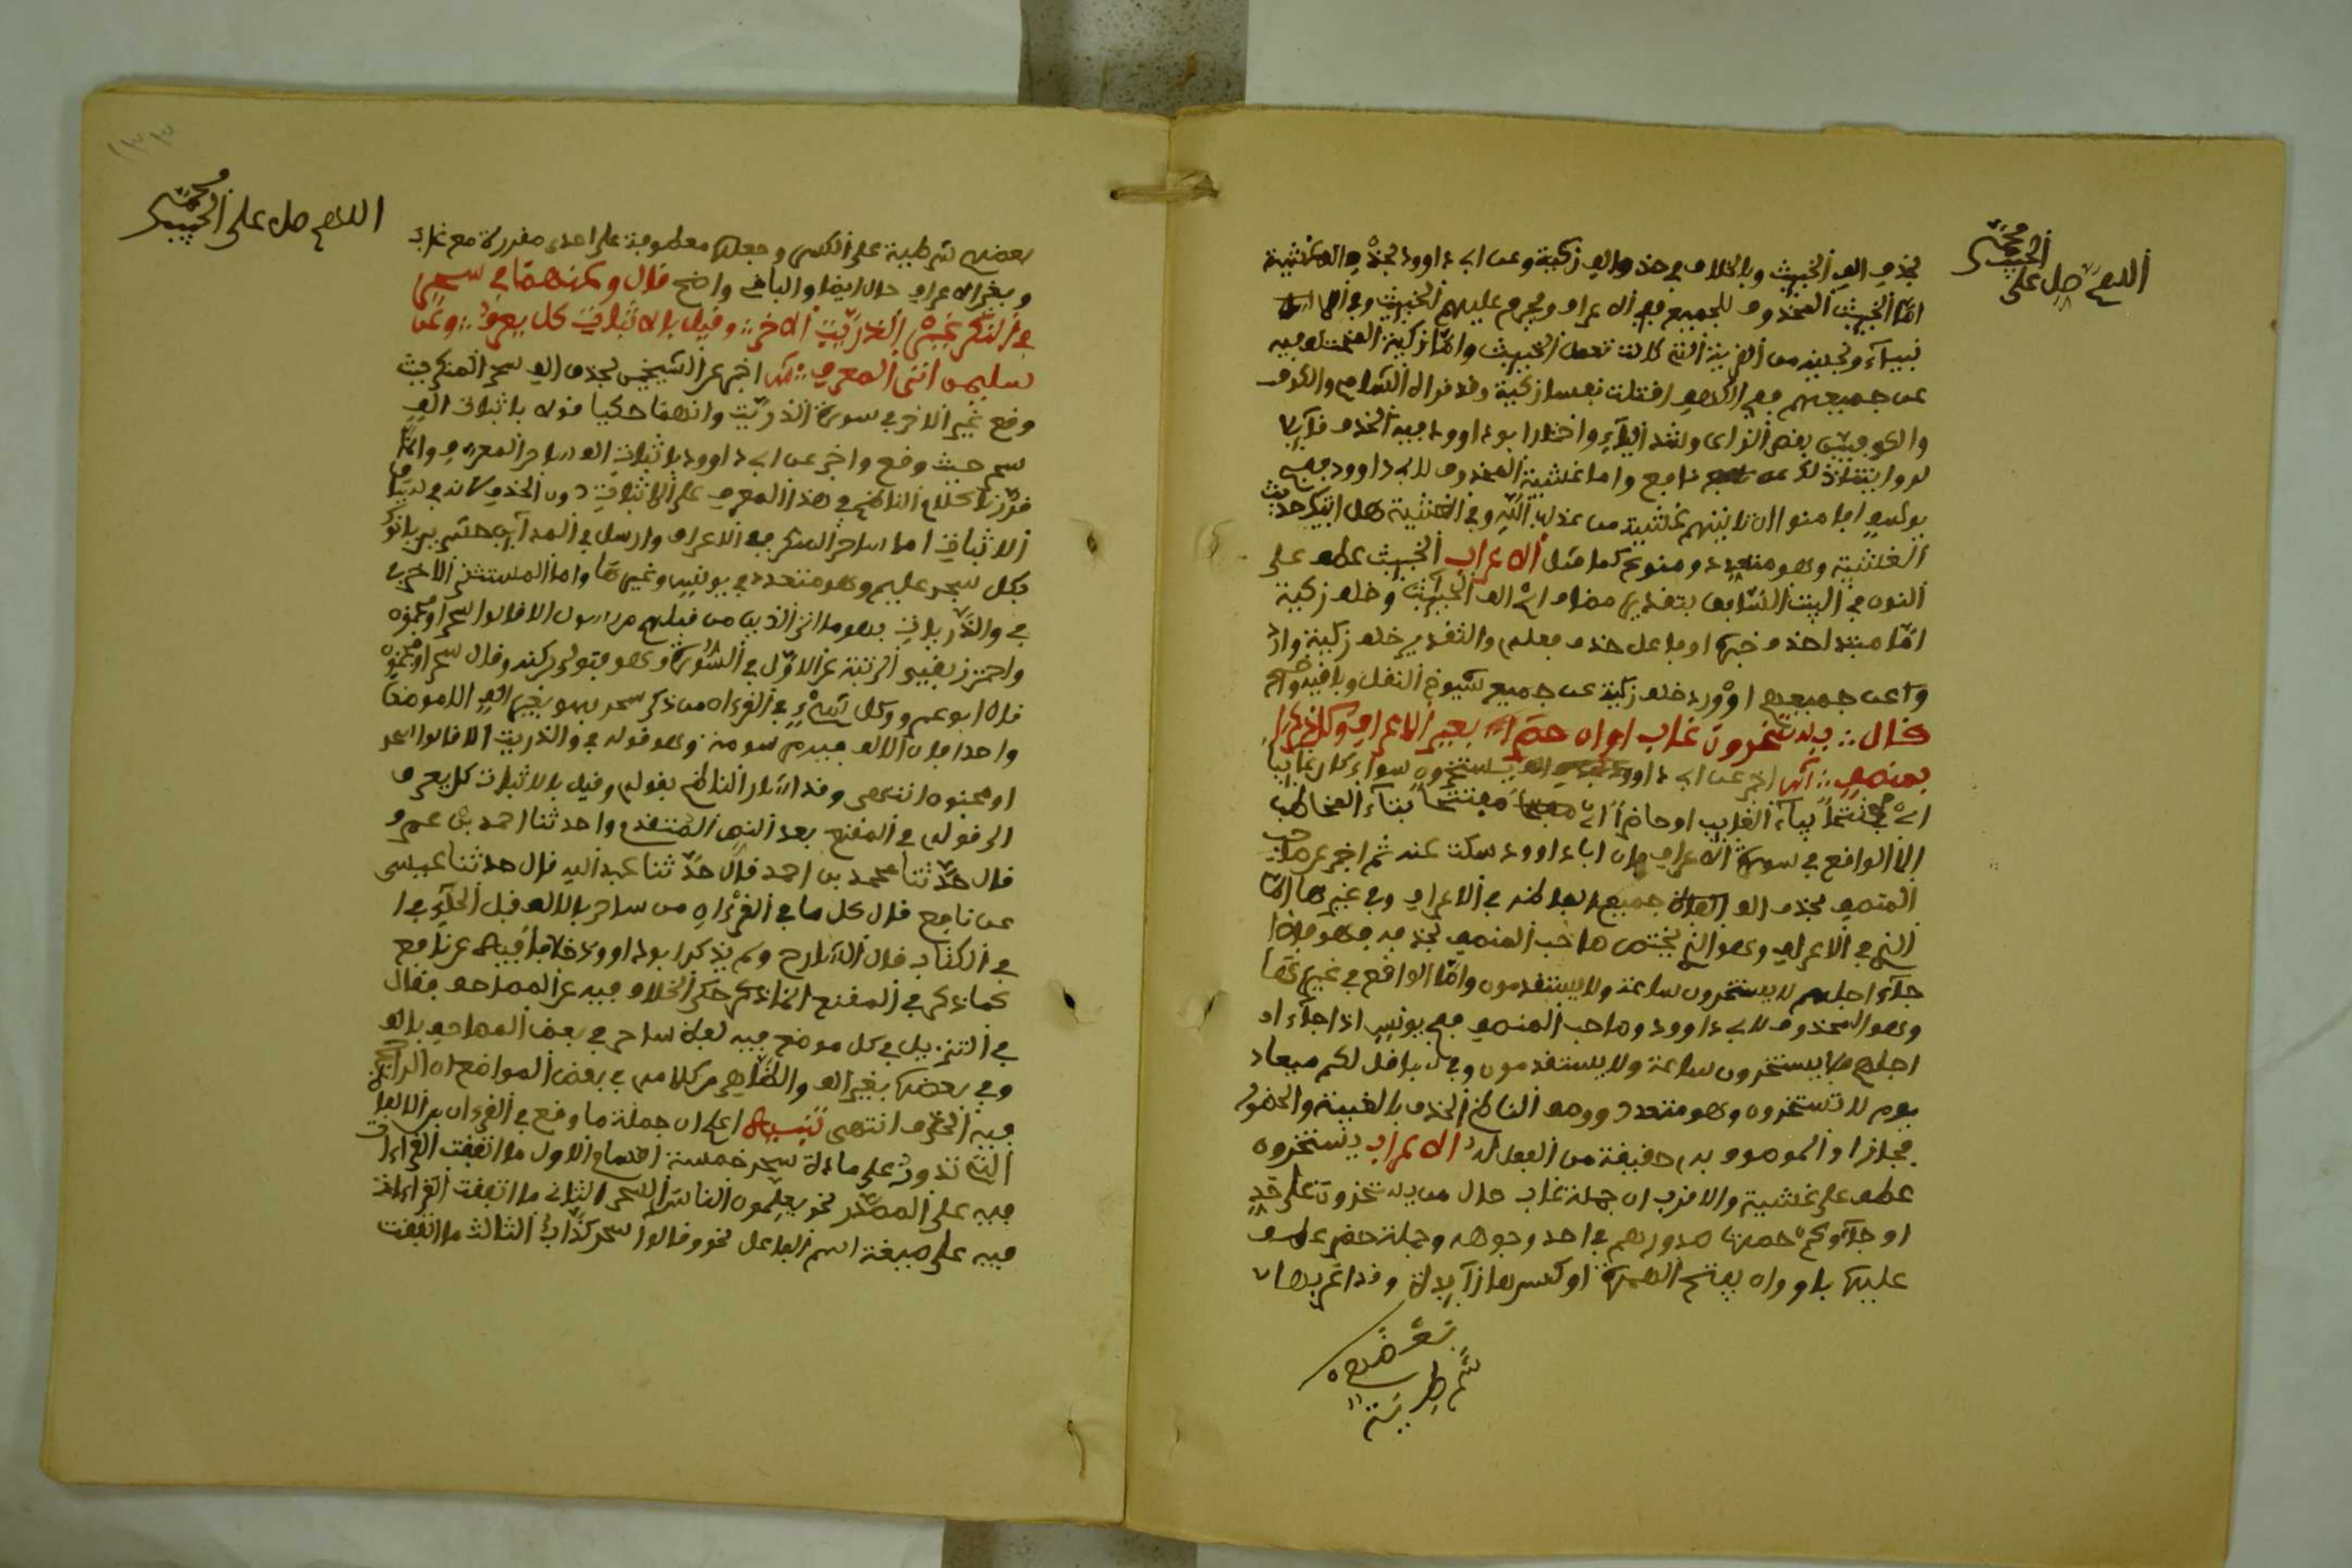 اللهم صل على الحبيب محمد
بحذف الف الخبيث وبالخلاف في حذف الف زكية وعن ابي داوود بحذف الف غشية
اما الخبيث المحذوف للجميع ففي الاعراف ويحرم عليهم الخبيث وفي
ونجيناه من القرية التي كانت تعمل الخبيث واما زكية المختلف فيه
عن جميعهم ففي الكهف اقتلت نفسا زكية وقد قراه الشام والكوف
والكوفيين بقصر الزاي وشد الياء واختار ابو داوود فيه الحذف
نافع واما غشية المحذوف لابي داوود ففي
يوسف افامنوا ان تاتيهم غشية من عذاب الله وفي الغشية هل اتيك حديث
الغشية وهو متعدد ومنوع كما مثل الاعراب الخبيث عطف على
النون في البيت السابق بتقدير مضاف اي الف الخبيث وخلف زكية
اما مبتدا حذف خبره او فاعل حذف فعله والتقدير خلف زكية وارد
وا عن جميعهم او ورد خلف زكية عن جميع شيوخ النقل وباقيه واضح
قال يستخرون غاب او ان حضرا بغير الاعراف وكل ذكرا
بمنصف اخبر عن ابي داوود يستخرون سواء كان غايبا
اي مفتتحا بياء الغايب او حاضرا اي مفتتحا بتاء المخاطب
الا الواقع في سورة الاعراف فان ابا داوود سكت عنه ثم اخبر عن صاحب
المنصف بحذف الف جميع الفاظه في الاعراف وفي غيرها اما
الذي في الاعراف وهو الذي يختص صاحب المنصف بحذفه فهو فاذا
جاء اجلهم لا يستخرون ساعة ولا يستقدمون واما الواقع في غيرها
وهو المحذوف لابي داوود وصاحب المنصف ففي يونس اذا جاء ا
اجلهم فلا يستخرون ساعة ولا يستقدمون وفي سبا قل لكم ميعاد
يوم لا تستخرون وهو متعدد ووصف الناظم الحذف بالغيبة والحضور
مجازا والموصوف به حقيقة من الفعل له الاعراب يستخرون
عطف على غشية والاقرب ان جملة غاب حال من يستخرون على حد
او جاءوكم حصرت صدورهم في احد وجوهه وجملة حضر عطف
عليها باو وان بفتح الهمزة او كسرها زائدة وقد اعربها
بعضهم
شرطية
١٣٣
اللهم صل على الحبيب محمد
بعضهم شرطية على الكسر وجعلها معطوفة على اخرى مقدرة مع غاب
وبغير الاعراف حال ايضا والباقي واضح قال وعنهما في سحر
في النكر غير الذريت الاخر وقيل بالاثبات كل يعرف وعن
سليمن اتى المعرف اخبر عن الشيخين بحذف الف سحر المنكر حيث
وقع غير الاخر في سورة الذريت وانهما حكيا قوله باثبات الف
سحر حيث وقع واخبر عن ابي داوود باثبات الف ساحر المعرف وانما
قررنا كلام الناظم في هذا المعرف على الاثبات دون الحذف لانه في سياق
الاثبات اما ساحر المنكر ففي الاعراف وارسل في المداين حشرين ياتوك
بكل سحر عليم وهو متعدد في يونس وغيرها واما المستثنى الاخر
في والذريات فهو ما اتى الذين من قبلهم من رسول الا قالوا ساحر او مجنون
واحترز بقيد الرتبة عن الاول في السورة وهو فتولى بركنه وقال سحر او مجنون
قال ابو عمرو وكل شيء في القرءان من ذكر سحر فهو بغير الف الا موضعا
واحدا فان الالف فيه مرسومة وهو قوله في والذريت الا قالوا ساحر
او مجنون انتهى وقد اشار الناظم بقوله وقيل بالاثبات كل يعرف
الى قوله في المقنع بعد النص المتقدم واحدثنا احمد بن عمر و
قال حدثنا محمد بن احمد قال حدثنا عبد الله قال حدثنا عيسى
عن نافع قال كل ما في القرءان من ساحر بالالف قبل الحاء في ا
في الكتاب قال الشارح ولم يذكر ابو داوود خلافا فيه عن نافع
كما ذكر في المقنع انما ذكر حكى الخلاف فيه عن المصاحف فقال
في التنزيل في كل موضع فيه لفظ ساحر في بعض المصاحف بالف
وفي بعضها بغير الف والظاهر من كلامه في بعض المواضع ان الراجح
فيه الحذف انتهى تنبيه اعلم ان جملة ما وقع في القرءان من الالفاظ
التي تدور على مادة سحر خمسة اقسام الاول ما اتفقت القراءات
فيه على المصدر نحو يعلمون الناس السحر الثاني ما اتفقت القراءات
فيه على صيغة اسم الفاعل نحو وقالوا سحر كذاب الثالث ما اتفقت